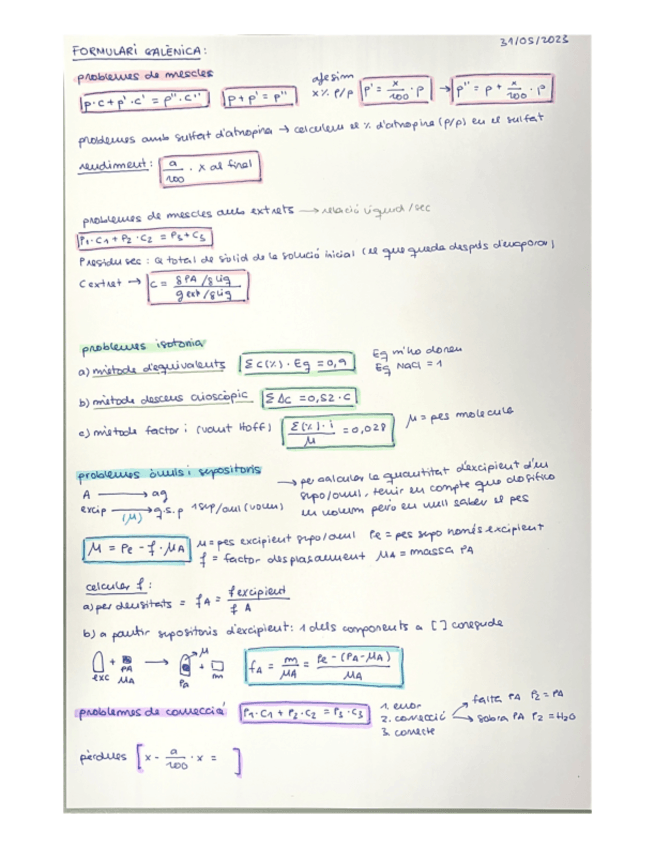 31/05/2023
FORMULARI GALÈNICA:
problemes de mescles
p·c + p'·c' = p''·c''
p + p' = p''
afegim x% p/p
p' = x/100 · p → p'' = p + x/100 · p
problemes amb sulfat d'atropina → calculem el % d'atropina (p/p) en el sulfat
rendiment: a/100 · x al final
problemes de mescles amb extrets → relació líquid/sec
P1·C1 + P2·C2 = P3+C3
P residu sec: Q total de sòlid de la solució inicial (el que queda després d'evaporar)
C extret → C = g PA/g líq / g ext/g líq
problemes isotonia
a) mètode d'equivalents Σ C(%) · Eg = 0,9
Eg m'ho donen
Eg NaCl = 1
b) mètode descens crioscòpic ΣΔc = 0,52 · C
c) mètode factor i (vant Hoff) Σ(%)·i / M = 0,028
M = pes molècula
problemes òvuls i supositoris
→ per calcular la quantitat d'excipient d'un
supo/òvul, tenir en compte que dosifico
en volum però em cal saber el pes
A → ag
excip → q.s.p 1sup/òvul (volum)
(M)
M = Pe - f · MA
M = pes excipient supo/òvul Pe = pes supo només excipient
f = factor desplasament MA = massa PA
calcular f:
a) per densitats = fA = f excipient / f A
b) a partir supositoris d'excipient: 1 dels components a [ ] coneguda
exc + PA MA → M PA + m
fA = m/MA = Pe - (PA - MA) / MA
problemes de correcció P1·C1 + P2·C2 = P3·C3
1. error
2. correcció
3. correcte
falta PA P2 = PA
sobra PA P2 = H2O
pèrdues [x - a/100 · x = ]